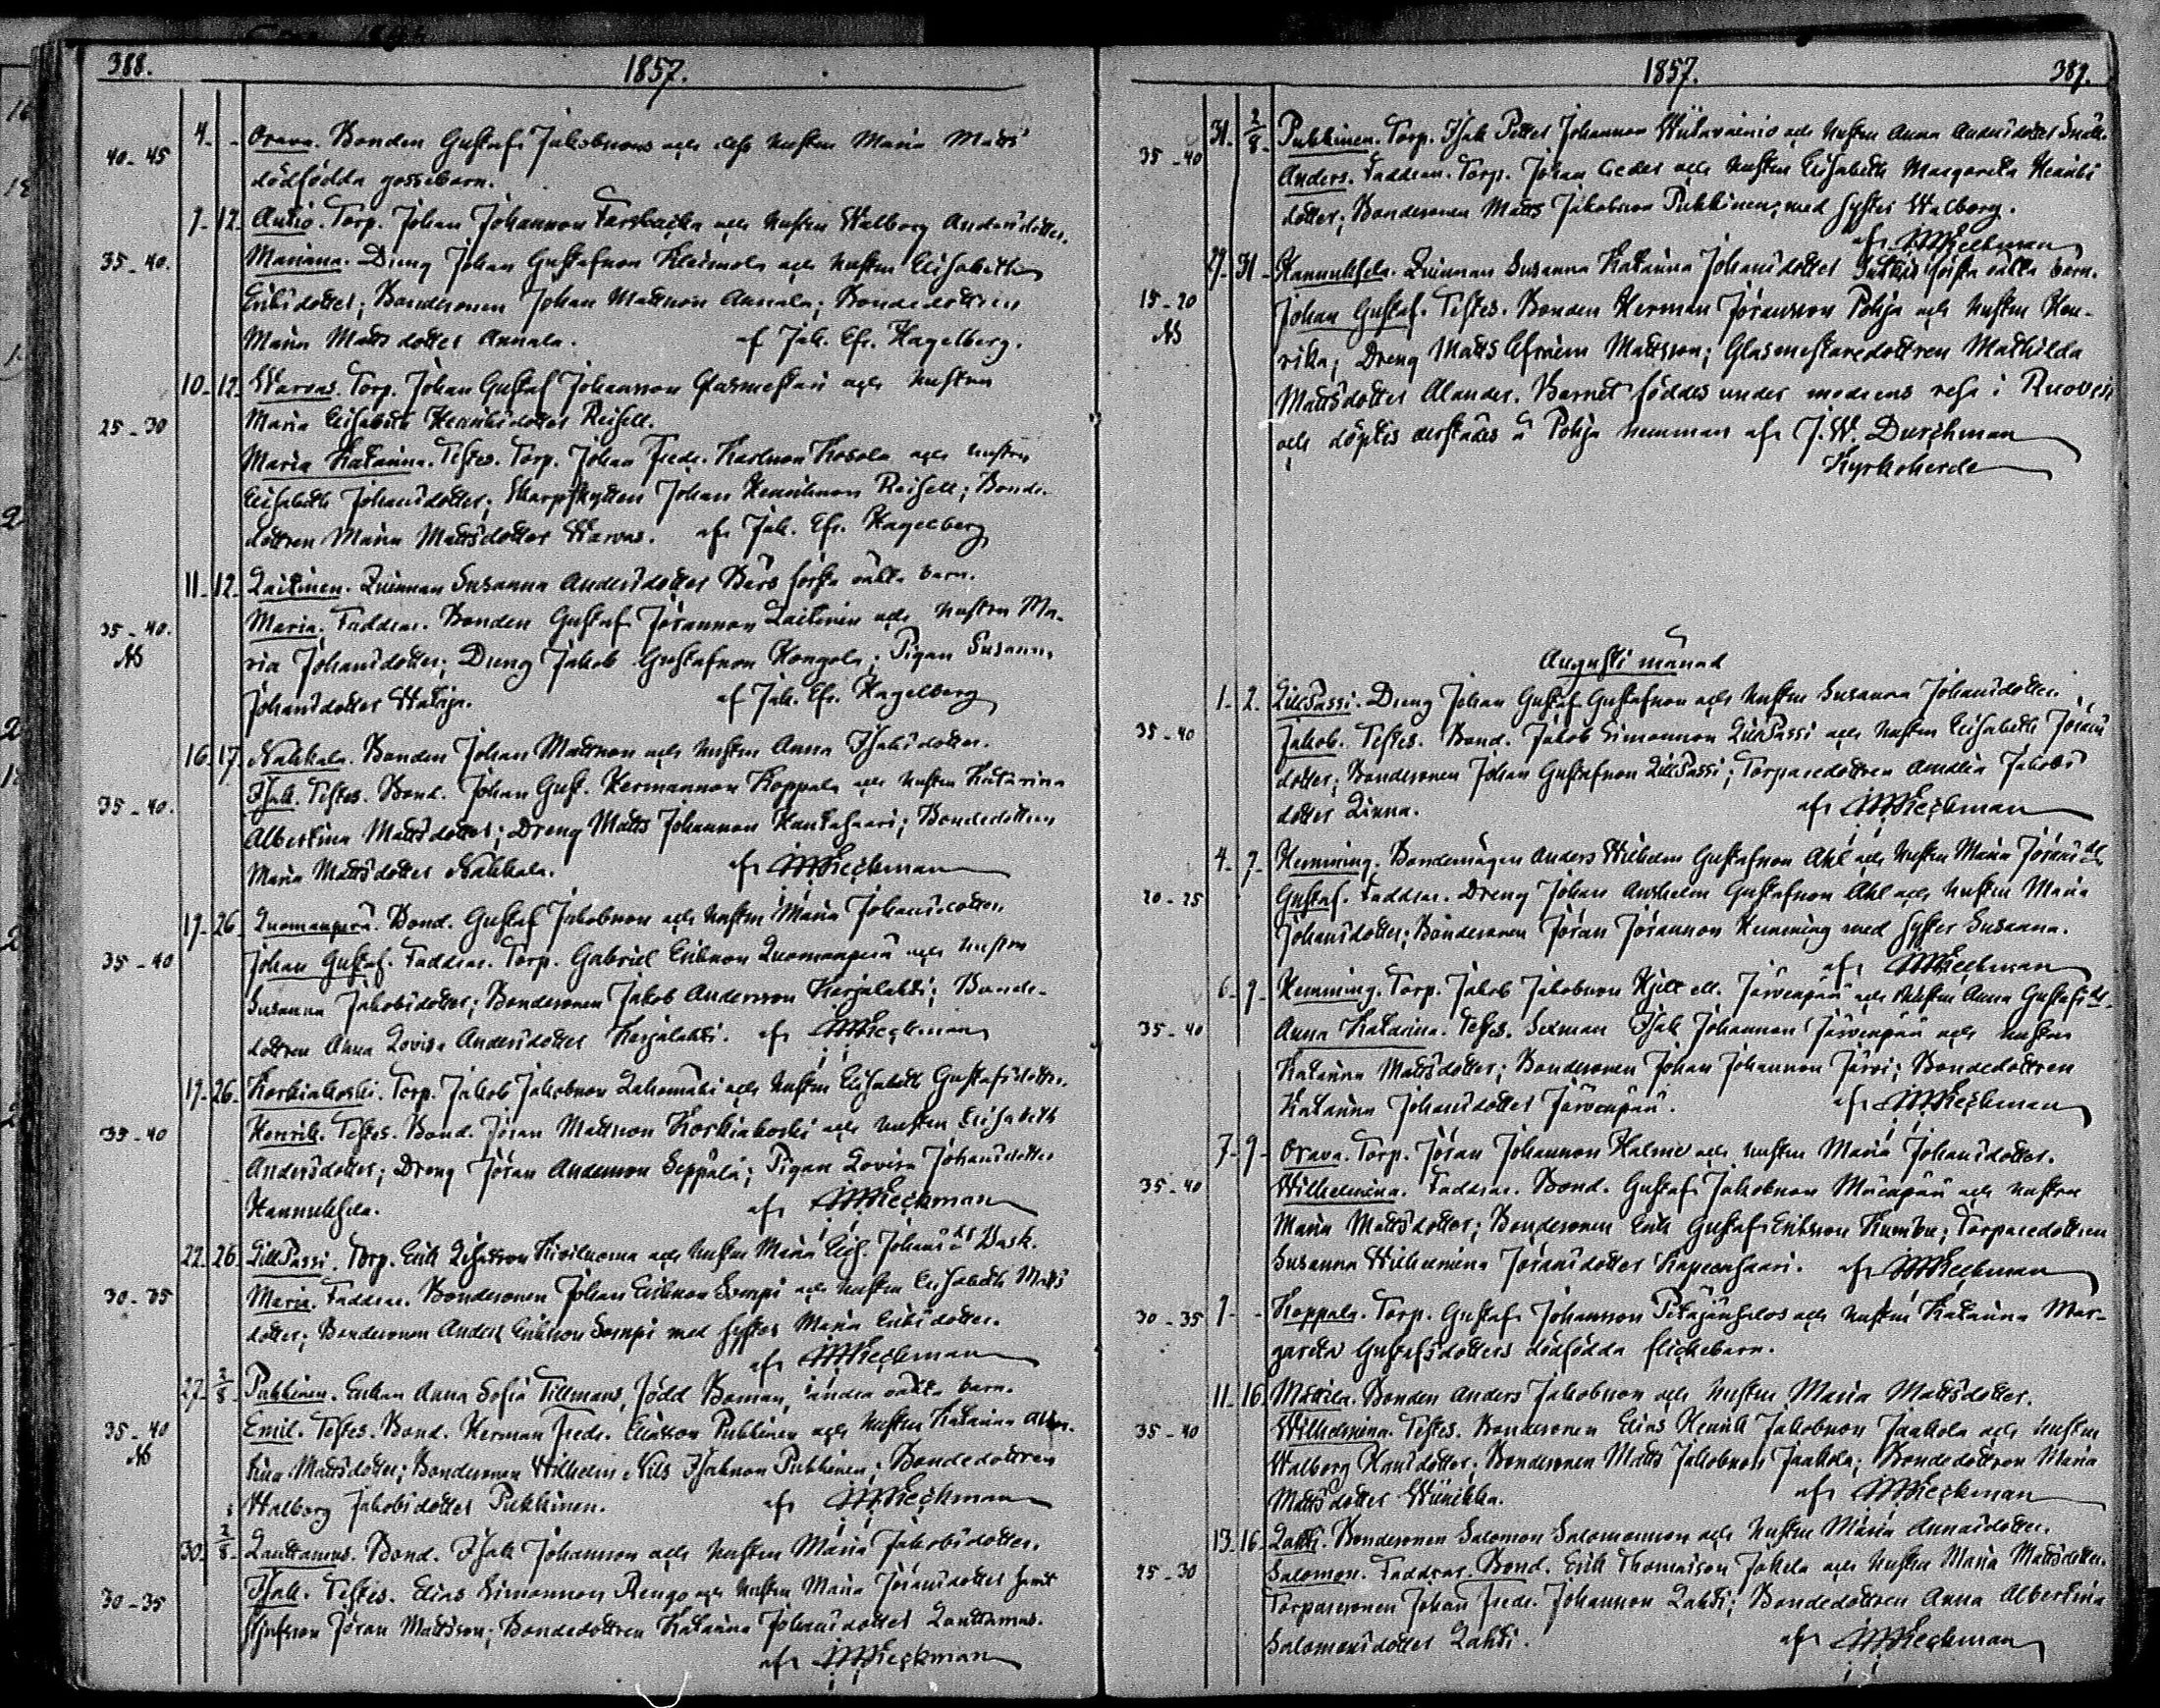 388. 1857.
4. - Orava. Bonden Gustaf Jakobsons och dess hustru Maria Matts
40-45 dödfödda gossebarn.
9. 12. Autio. Torp. Johan Johansson och hustru Walborg Andersdotter.
35-40. Mariana. Dreng Johan Gustafsson Kleimola och hustru Elisabeth
Eriksdotter; Bondesonen Johan Mattsson Annala; Bondedottren
Maria Mattsdotter Annala. af Jak. Efr. Hagelberg.
10. 12. Warvas. Torp. Johan Gustaf Johansson Glasmestari och hustrun
25-30 Maria Elisabeth Henriksdotter Reisell.
Maria Katarina. Testes. Torp. Johan Fredr. Karlsson Kosola och hustru
Elisabeth Johansdotter; Skarpskytten Johan Henriksson Reisell; Bonde-
dottren Maria Mattsdotter Warvas. afr Jak. Efr. Hagelberg
11. 12. Laitinen. Quinnan Susanna Andersdotter Bärs första oäkta barn.
35-40. Maria. Faddrar. Bonden Gustaf Göransson Laitinen och hustru Ma-
ria Johansdotter; Dreng Jakob Gustafsson Kongola; Pigan Susanna
Johansdotter af Jak. Efr. Hagelberg
16. 17. Nahkala. Bonden Johan Mattsson och hustru Anna Isaksdotter.
35-40. Isak. Testes. Bond. Johan Gust. Hermansson Koppala och hustru Katarina
Albertina Mattsdotter; Dreng Matts Johansson Kantasaari; Bondedottren
Maria Mattsdotter Nahkala. afr Heckman
19. 26. Luomanperä. Bond. Gustaf Jakobsson och hustru Maria Johansdotter.
35-40 Johan Gustaf. Faddrar. Torp. Gabriel Eriksson Luomanperä och hustru
Susanna Jakobsdotter; Bondesonen Jakob Andersson Karjalahti; Bonde-
dottren Anna Lovisa Andersdotter Karjalahti. afr Heckman
19. 26. Korkiakoski. Torp. Jakob Jakobsson Lahomäki och hustru Elisabeth Gustafsdotter.
35-40 Henrik. Testes. Bond. Jöran Mattsson Korkiakoski och hustru Elisabeth
Andersdotter; Dreng Jöran Andersson Seppälä; Pigan Lovisa Johansdotter
Hannuksela. afr Heckman
22. 26. Lillpassi. Torp. Erik Kiviluoma och hustru Maria Elis. Johansdr Bask.
30-35 Maria. Faddrar. Bondesonen Johan Eriksson Sompi och hustru Elisabeth Matts
dotter; Bondesonen Anders Eriksson Sompi med syster Maria Eriksdotter.
afr Heckman
27. 2/8. Pukkinen. Enkan Anna Sofia Tillmans, född Boman, andra oäkta barn.
35-40 Emil. Testes. Bond. Herman Fredr. Eliasson Pukkinen och hustru Katarina Alber-
tina Mattsdotter; Bondesonen Wilhelm Nils Isaksson Pukkinen; Bondedottren
Walborg Jakobsdotter Pukkinen. afr Heckman
30. 2/8. Lauttamus. Bond. Isak Johansson och hustru Maria Jakobsdotter.
30-35 Isak. Testes. Elias Simonsson Rengo och hustru Maria Jöransdotter samt
styfsson Jöran Mattsson; Bondedottren Katarina Johansdotter Lauttamus.
afr Heckman
1857. 389.
31. 2/8. Pukkinen. Torp. Isak Petter Johansson och hustru Anna Andersdotter
35-40 Anders. Faddrar. Torp. Johan Ceder och hustru Elisabeth Margareta Henriks
dotter; Bondesonen Matts Jakobsson Pukkinen, med syster Walborg.
afr Heckman
29. 31. Hannuksela. Quinnan Susanna Katarina Johansdotter första oäkta barn.
15-20 Johan Gustaf. Testes. Bonden Herman Jöransson Pohja och hustru Hen-
rika; Dreng Matts Efraim Mattsson; Glasmestaredottren Mathilda
Mattsdotter Alander. Barnet föddes under modrens resa i Ruovesi
och döptes derstädes å Pohja hemman afr J. W. Durchman
Kyrkoherde
Augusti månad
1. 2. Lillpassi. Dreng Johan Gustaf Gustafsson och hustru Susanna Johansdotter.
35-40 Jakob. Testes. Bond. Jakob Simonsson Lillpassi och hustru Elisabeth Jörans
dotter; Bondesonen Johan Gustafsson Lillpassi; Torparedottren Amalia Jakobs
dotter Linna. afr Heckman
4. 9. Hemming. Bondemågen Anders Wilhelm Gustafsson Ahl och hustru Maria Jöransdr
20-25 Gustaf. Faddrar. Dreng Johan Anshelm Gustafsson Ahl och hustru Maria
Johansdotter; Bondesonen Jöran Jöransson Hemming med syster Susanna.
afr Heckman
6. 9. Hemming. Torp. Jakob Jakobsson Hjelt ell. Järvenpää och hustru Anna Gustafsdr
35-40 Anna Katarina. Testes. Sexman Isak Johansson Järvenpää och hustru
Katarina Mattsdotter; Bondesonen Johan Johansson Järvi; Bondedottren
Katarina Johansdotter Järvenpää. afr Heckman
7. 9. Orava. Torp. Jöran Johansson Halme och hustru Maria Johansdotter.
35-40 Wilhelmina. Faddrar. Bond. Gustaf Jakobsson Mäenpää och hustru
Maria Mattsdotter; Bondesonen Erik Gustaf Eriksson; Torparedottren
Susanna Wilhelmina Jöransdotter Kapeensaari. afr Heckman
30-35 9. - Koppala. Torp. Gustaf Johansson Pitkäjänsalos och hustru Katarina Mar-
gareta Gustafsdotters dödfödda flickebarn.
11. 16. Mattila. Bonden Anders Jakobsson och hustru Maria Mattsdotter.
35-40 Wilhelmina. Testes. Bondesonen Elias Henrik Jakobsson Jaakola och hustru
Walborg Hansdotter; Bondesonen Matts Jakobsson Jaakola; Bondedottren Maria
Mattsdotter Wiinikka. afr Heckman
13. 16. Lahti. Bondesonen Salomon Salomonsson och hustru Maria Annasdotter.
25-30 Salomon. Faddrar. Bond. Erik Thomasson Jokela och hustru Maria Mattsdotter.
Torparesonen Johan Fredr. Johansson Lahti; Bondedottren Anna Albertina
Salomonsdotter Lahti. afr Heckman